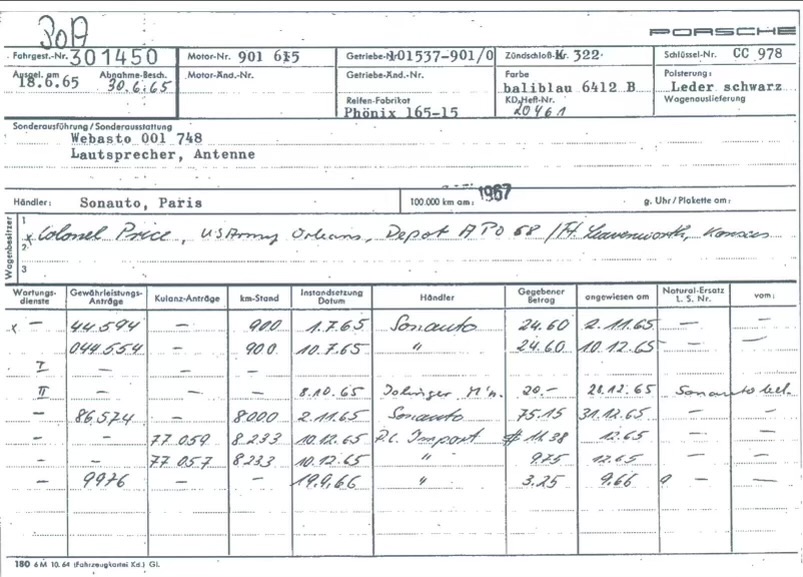 PORSCHE
Fahrgest.-Nr. 301450 Motor-Nr. 901 615 Getriebe-Nr. 101537-901/0 Zündschloß-Nr. 322 Schlüssel-Nr. CC 978
Ausgel. am 18.6.65 Abnahme-Besch. 30.6.65 Motor-Änd.-Nr. Getriebe-Änd.-Nr. Farbe baliblau 6412 B Polsterung: Leder schwarz
Reifen-Fabrikat Phönix 165-15 KD-Heft-Nr. 20461 Wagenauslieferung
Sonderausführung/Sonderausstattung
Webasto 001 748
Lautsprecher, Antenne
Händler: Sonauto, Paris 100.000 km am: 1967 g. Uhr/Plakette am:
Wagenbesitzer
1
x Colonel Price, US Army Orleans, Depot APO 68 / Ft. Leavenworth, Kansas
2
3
Wartungs-dienste Gewährleistungs-Anträge Kulanz-Anträge km-Stand Instandsetzung Datum Händler Gegebener Betrag angewiesen am Natural-Ersatz L. S. Nr. vom:
x – 44.594 – 900 1.7.65 Sonauto 24.60 2.11.65 – –
044.554 – 900 10.7.65 " 24.60 10.12.65 – –
I – – –
II – – – 8.10.65 20.- 28.12.65 Sonauto bel.
– 86.574 – 8000 2.11.65 Sonauto 75.15 31.12.65 – –
– – 77.059 8.233 10.12.65 P.C. Import $ 11.38 12.65 – –
– – 77.057 8.233 10.12.65 " 9.75 12.65 – –
– 9976 – – 19.9.66 " 3.25 9.66 – –
180 6 M 10. 64 (Fahrzeugkartei Kd.) GL